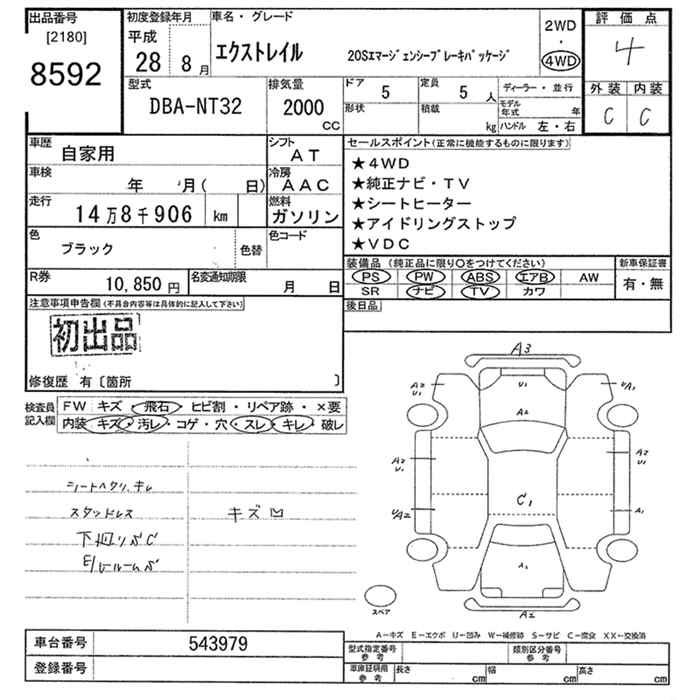 出品番号
[2180]
8592
初度登録年月
平成
28 8月
車名・グレード
エクストレイル 20Sエマージェンシーブレーキパッケージ
2WD
・
4WD
評価点
4
外装 内装
C C
型式
DBA-NT32
排気量
2000
CC
ドア 5
形状
定員 5人
積載 kg
ディーラー・並行
モデル年式 年
ハンドル 左・右
車歴
自家用
シフト
AT
車検
年 月( 日)
冷房
AAC
走行
14万8千906 km
燃料
ガソリン
色
ブラック
色替
色コード
R券
10,850円
名変通知期限
月 日
セールスポイント(正常に機能するものに限ります)
★4WD
★純正ナビ・TV
★シートヒーター
★アイドリングストップ
★VDC
装備品 (純正品に限り○をつけてください)
PS PW ABS エアB AW
SR ナビ TV カワ
新車保証書
有・無
後日品
注意事項申告欄(不具合内容等は具体的に記入して下さい)
初出品
修復歴 有〔箇所 〕
検査員
記入欄
FW キズ・飛石・ヒビ割・リペア跡・×要
内装 キズ・汚レ・コゲ・穴・スレ・キレ・破レ
シートヘタリ、キレ
スタッドレス
キズ
下回りSC
E/GルームS
A3
A2
U1
U1
U/A1
A2
A2
U1
A2
U1
U/A2
C1
A1
A1
A2
スペア
A-キズ E-エクボ U-凹み W-補修跡 S-サビ C-腐食 XX-交換済
車台番号 543979
登録番号
型式指定番号
参考
類別区分番号
参考
車庫証明用
参考
長さ cm 幅 cm 高さ cm